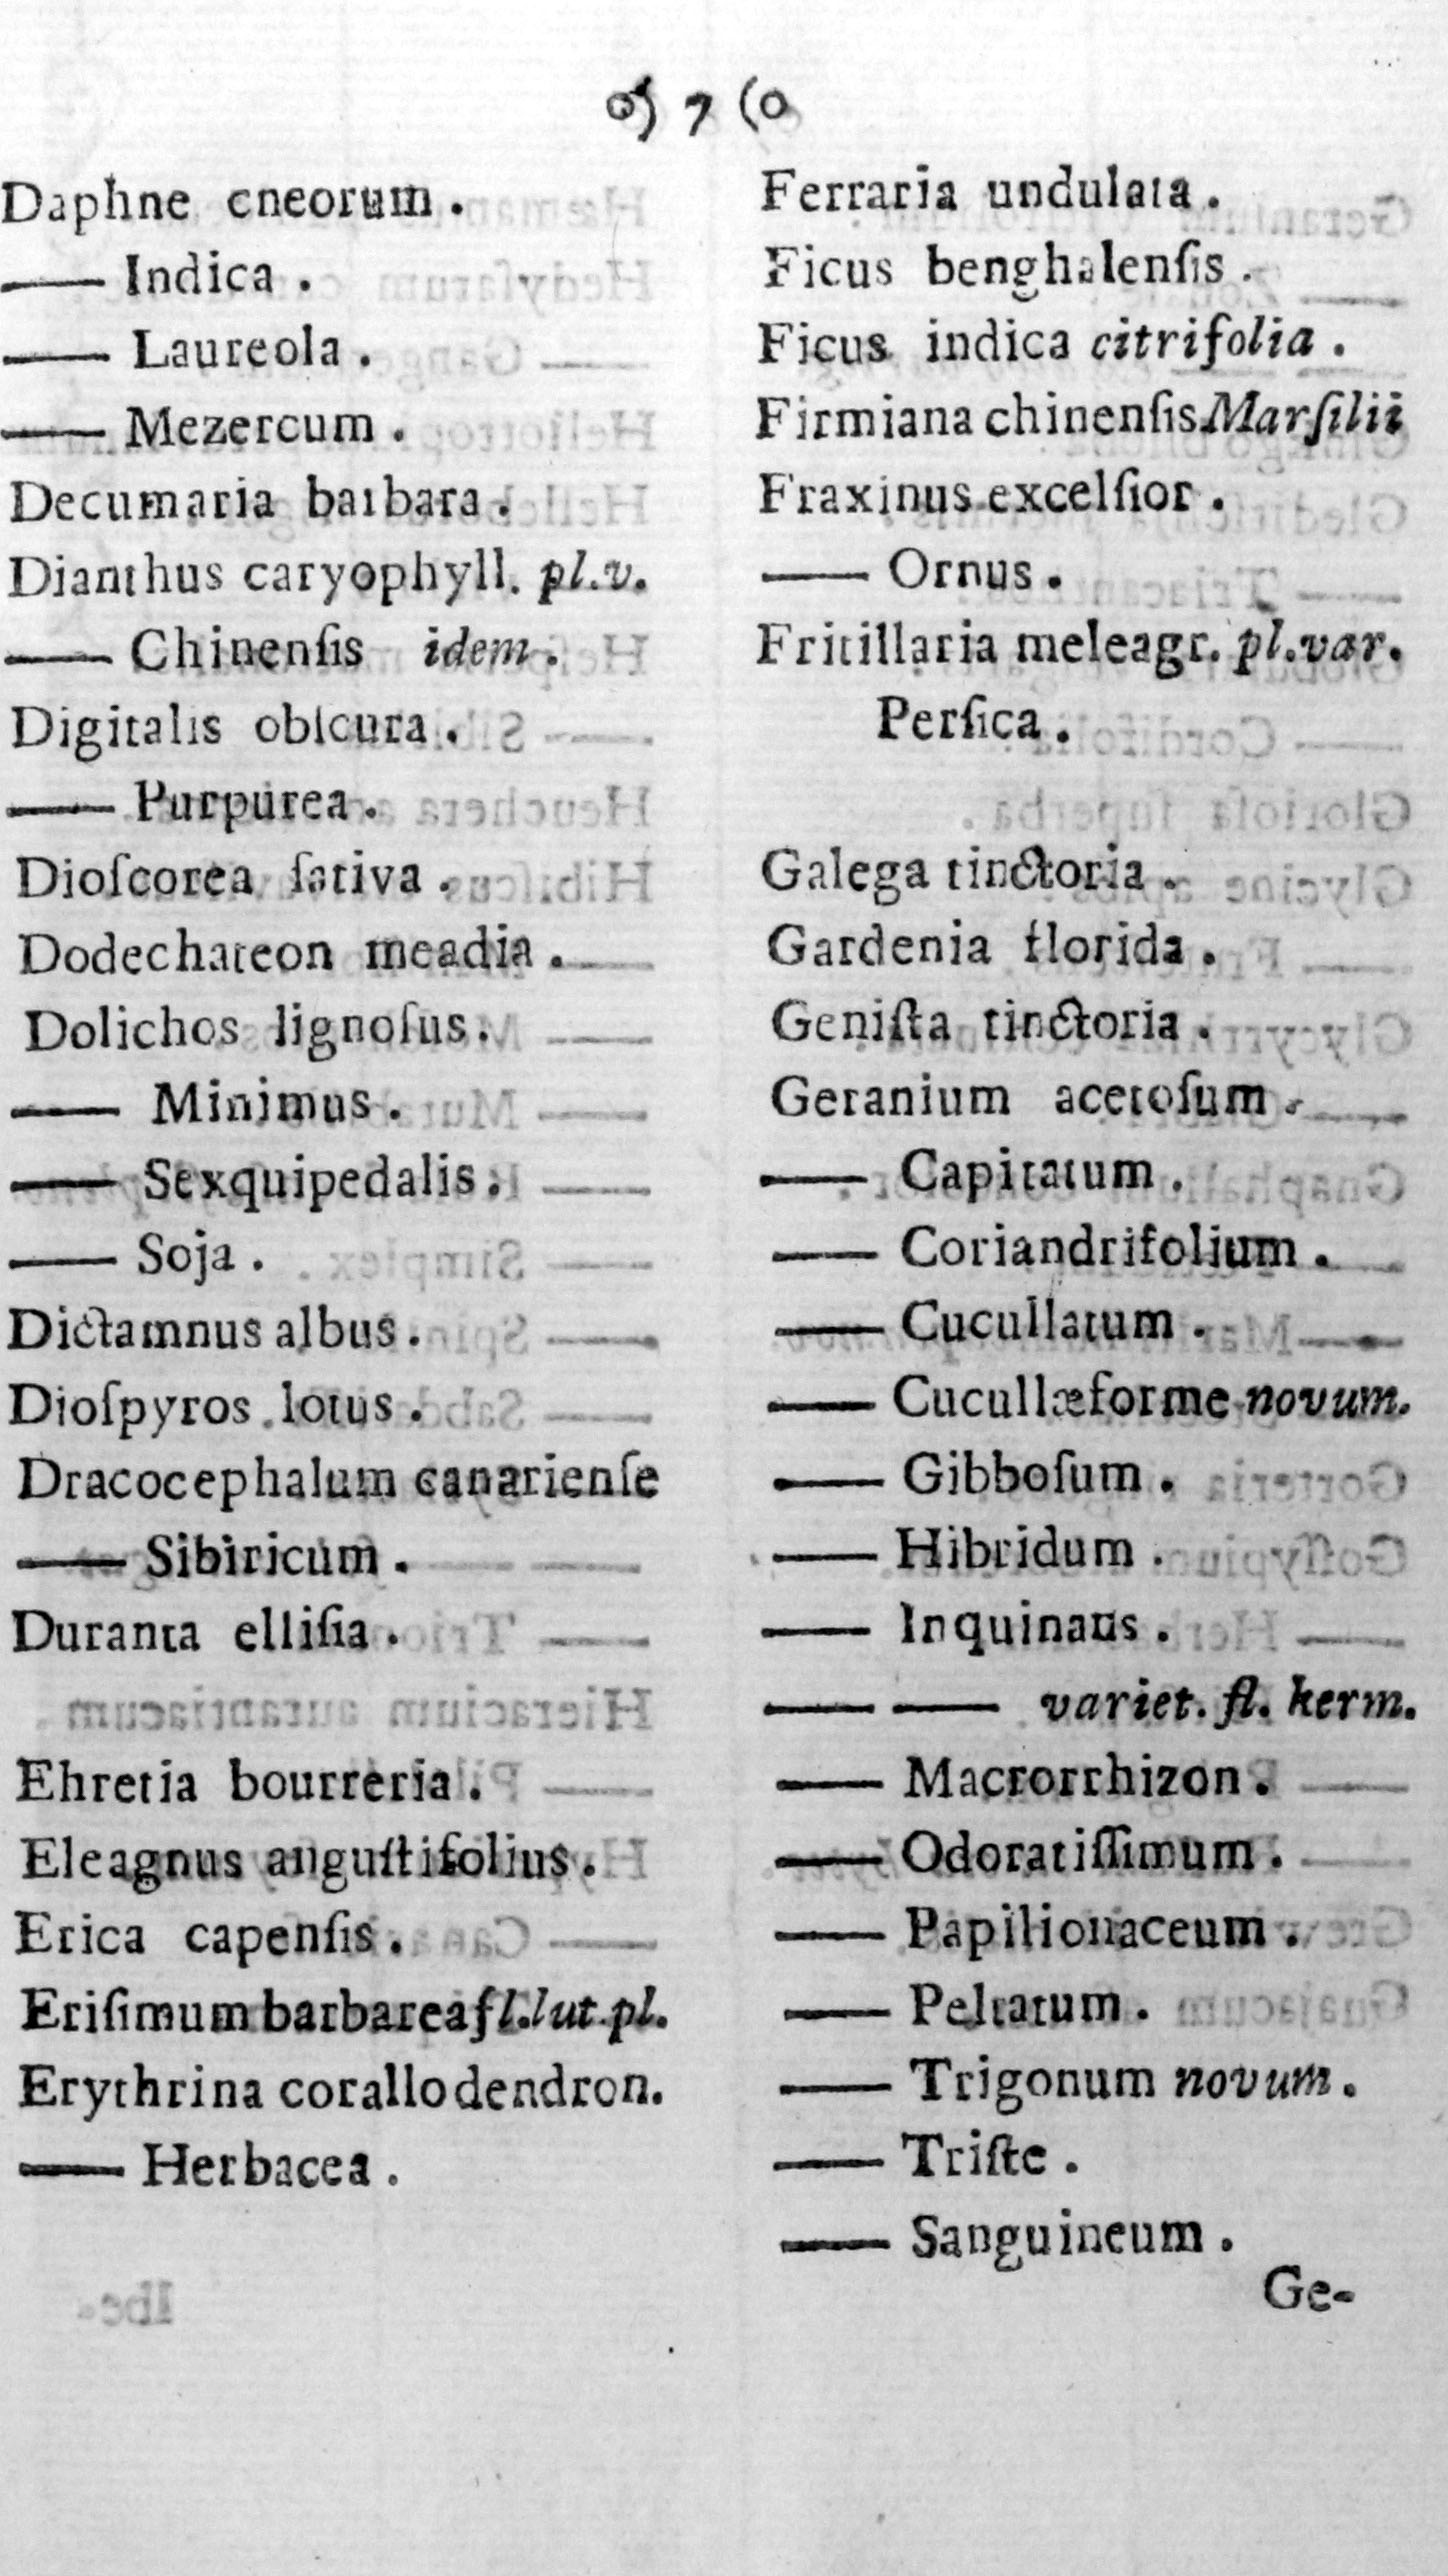 o) 7 (o
Daphne cneorum .
—— Indica .
—— Laureola .
—— Mezercum .
Decumaria barbara .
Dianthus caryophyll. pl.v.
—— Chinenſis idem .
Digitalis obſcura .
—— Purpurea .
Dioſcorea ſativa .
Dodechateon meadia .
Dolichos lignoſus .
—— Minimus .
—— Sexquipedalis .
—— Soja .
Dictamnus albus .
Dioſpyros lotus .
Dracocephalum canarienſe
—— Sibiricum .
Duranta elliſia .
Ehretia bourreria .
Eleagnus anguſtifolius .
Erica capenſis .
Eriſimum barbarea fl.lut.pl.
Erythrina corallodendron.
—— Herbacea .
Ferraria undulata .
Ficus benghalenſis .
Ficus indica citrifolia .
Firmiana chinenſis Marſilii
Fraxinus excelſior .
—— Ornus .
Fritillaria meleagr. pl.var.
Perſica .
Galega tinctoria .
Gardenia florida .
Geniſta tinctoria .
Geranium acetoſum .
—— Capitatum .
—— Coriandrifolium .
—— Cucullatum .
—— Cucullæforme novum.
—— Gibboſum .
—— Hibridum .
—— Inquinans .
—— —— variet. fl. kerm.
—— Macrorrhizon .
—— Odoratiſſimum .
—— Papilionaceum .
—— Peltatum .
—— Trigonum novum .
—— Triſte .
—— Sanguineum .
Ge-